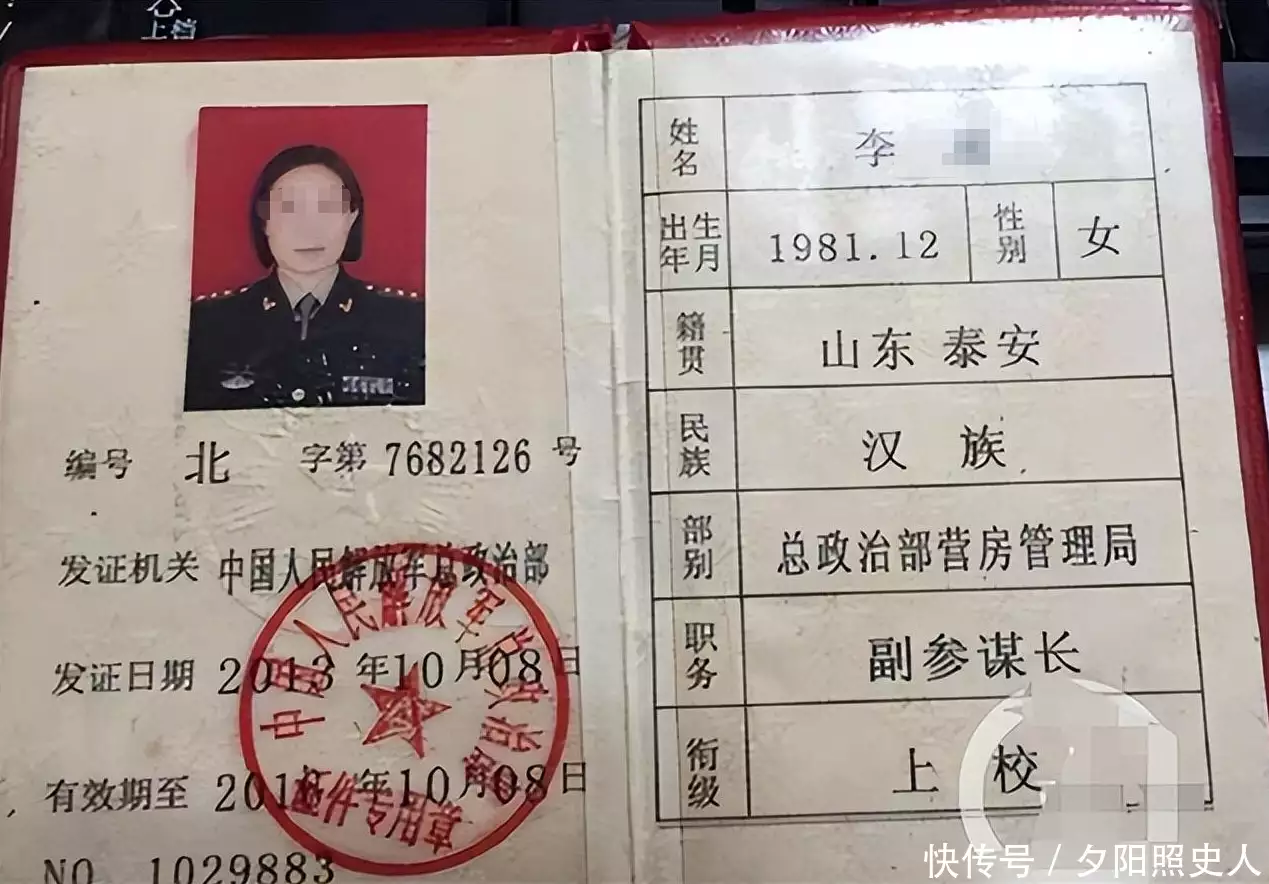 上档
编号 北 字第 7682126 号
发证机关 中国人民解放军总政治部
发证日期 2013 年10月08日
有效期至 201 年10月08日
NO 1029883
中国人民解放军总政治部
证件专用章
姓名 李
出生年月 1981.12 性别 女
籍贯 山东 泰安
民族 汉 族
部别 总政治部营房管理局
职务 副参谋长
衔级 上 校
快传号 / 夕阳照史人